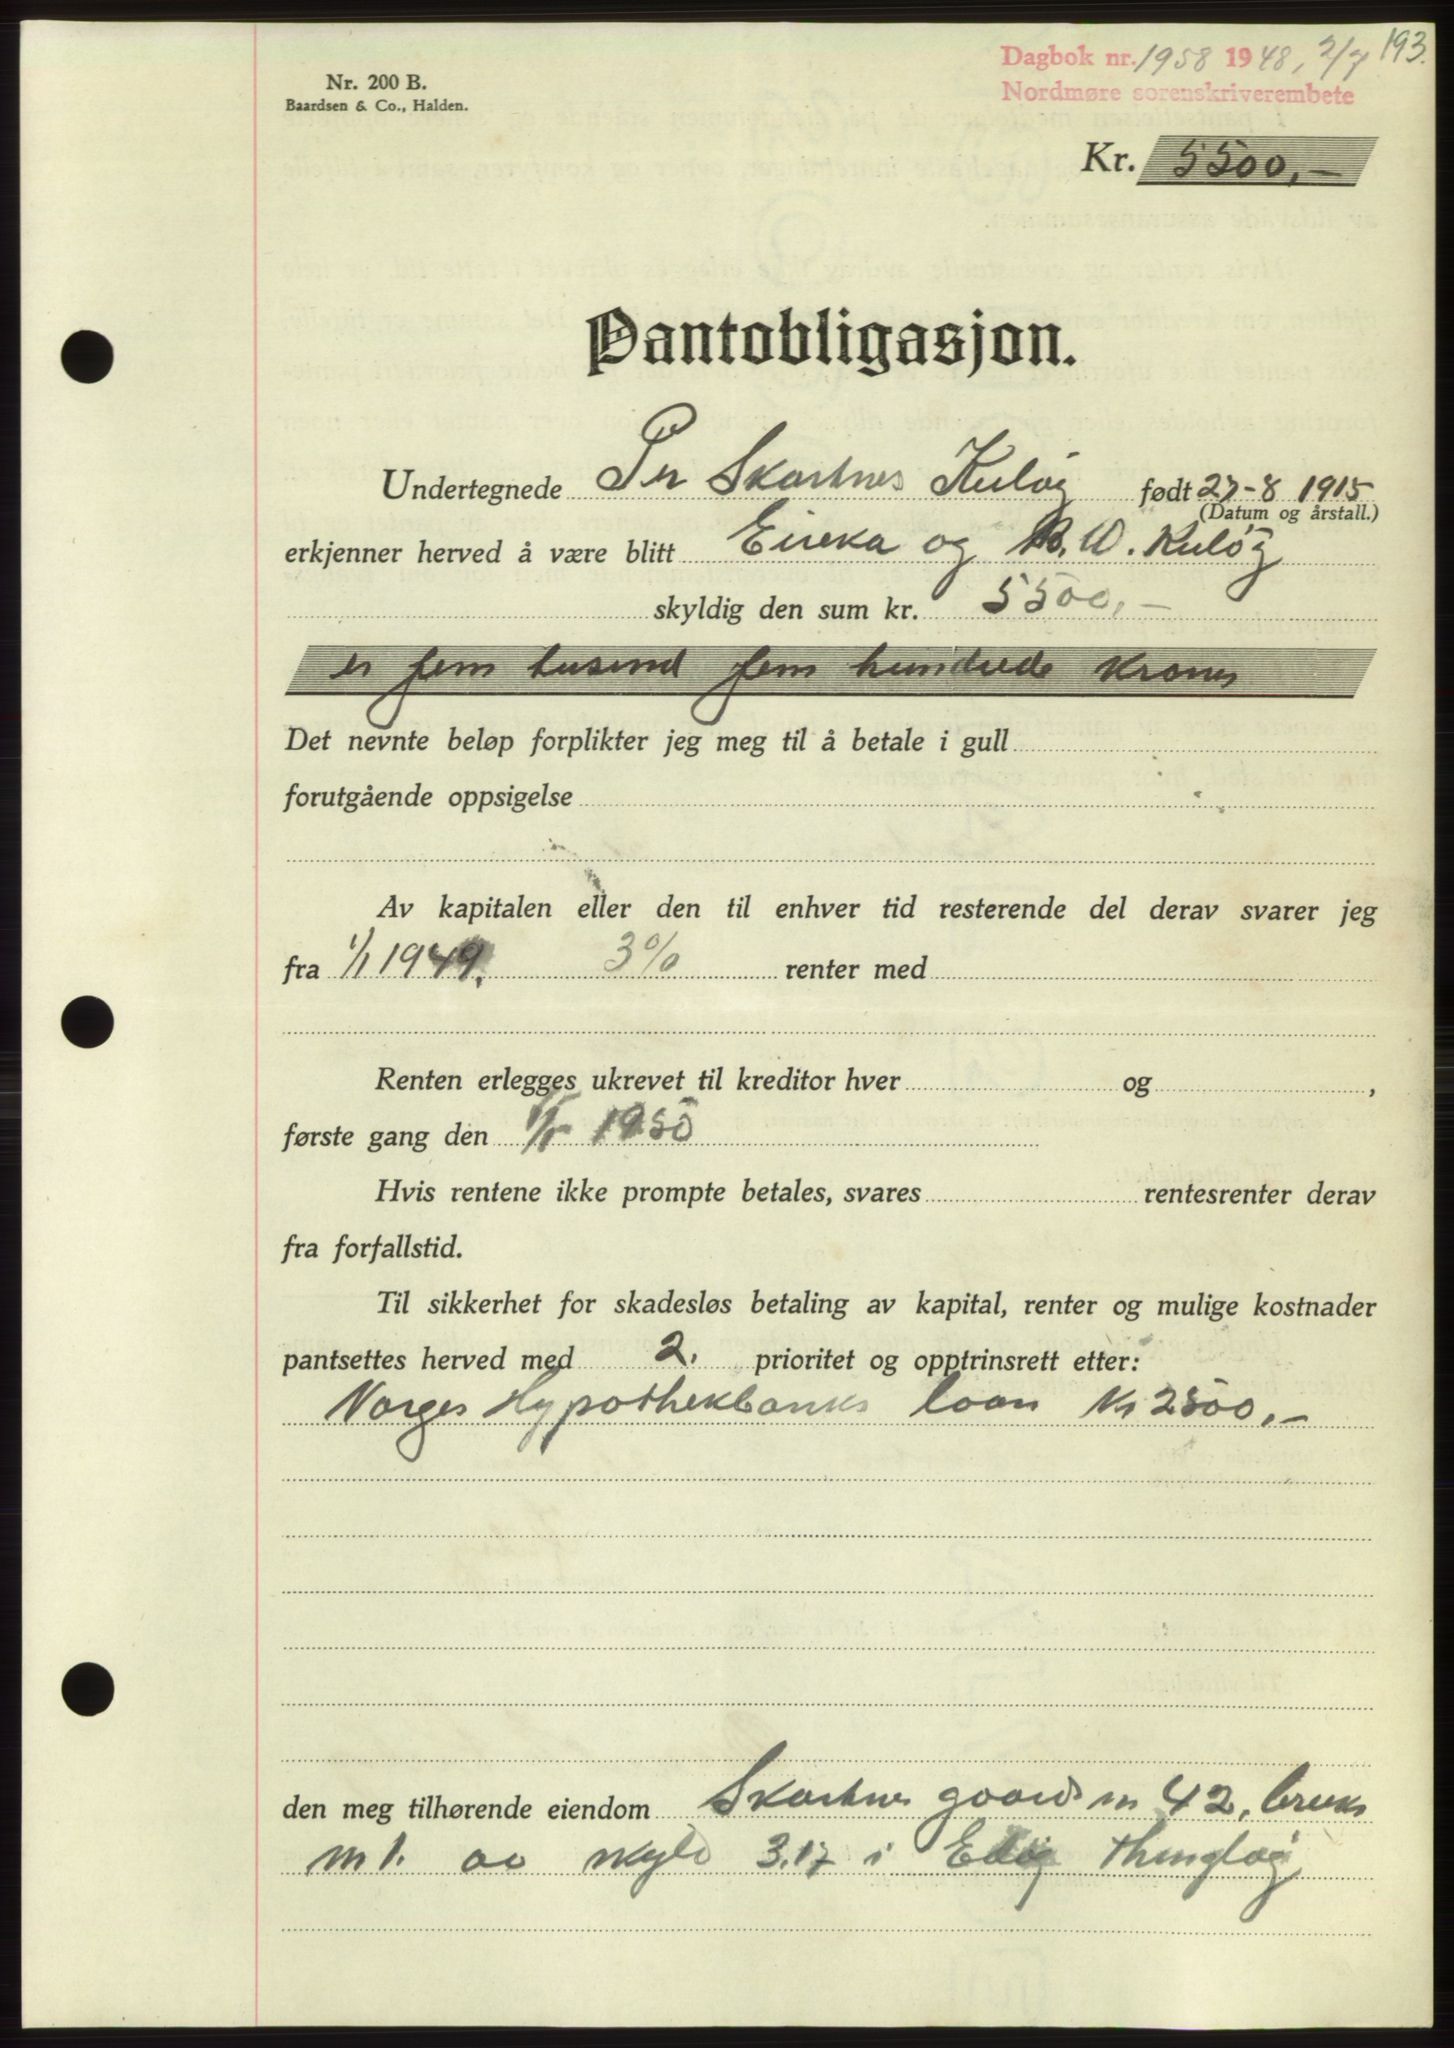 193.
Dagbok nr. 1958 1948, 2/7
Nordmøre sorenskriverembete
Nr. 200 B.
Baardsen & Co., Halden.
Kr. 5500,-
Pantobligasjon.
Undertegnede Per Skartnes Kuløy født 27-8 1915
(Datum og årstall.)
erkjenner herved å være blitt Eireka og B. W. Kuløy
skyldig den sum kr. 5500,-
er fem tusend fem hundrede kroner
Det nevnte beløp forplikter jeg meg til å betale i gull
forutgående oppsigelse
Av kapitalen eller den til enhver tid resterende del derav svarer jeg
fra 1/1 1949. 3% renter med
Renten erlegges ukrevet til kreditor hver og ,
første gang den 1/1 1950
Hvis rentene ikke prompte betales, svares rentesrenter derav
fra forfallstid.
Til sikkerhet for skadesløs betaling av kapital, renter og mulige kostnader
pantsettes herved med 2. prioritet og opptrinsrett etter:
Norges Hypothekbanks laan kr 2500,-
den meg tilhørende eiendom Skartnes gaards nr 42, bruks
nr 1. av skyld 3.17 i Edøy thinglag